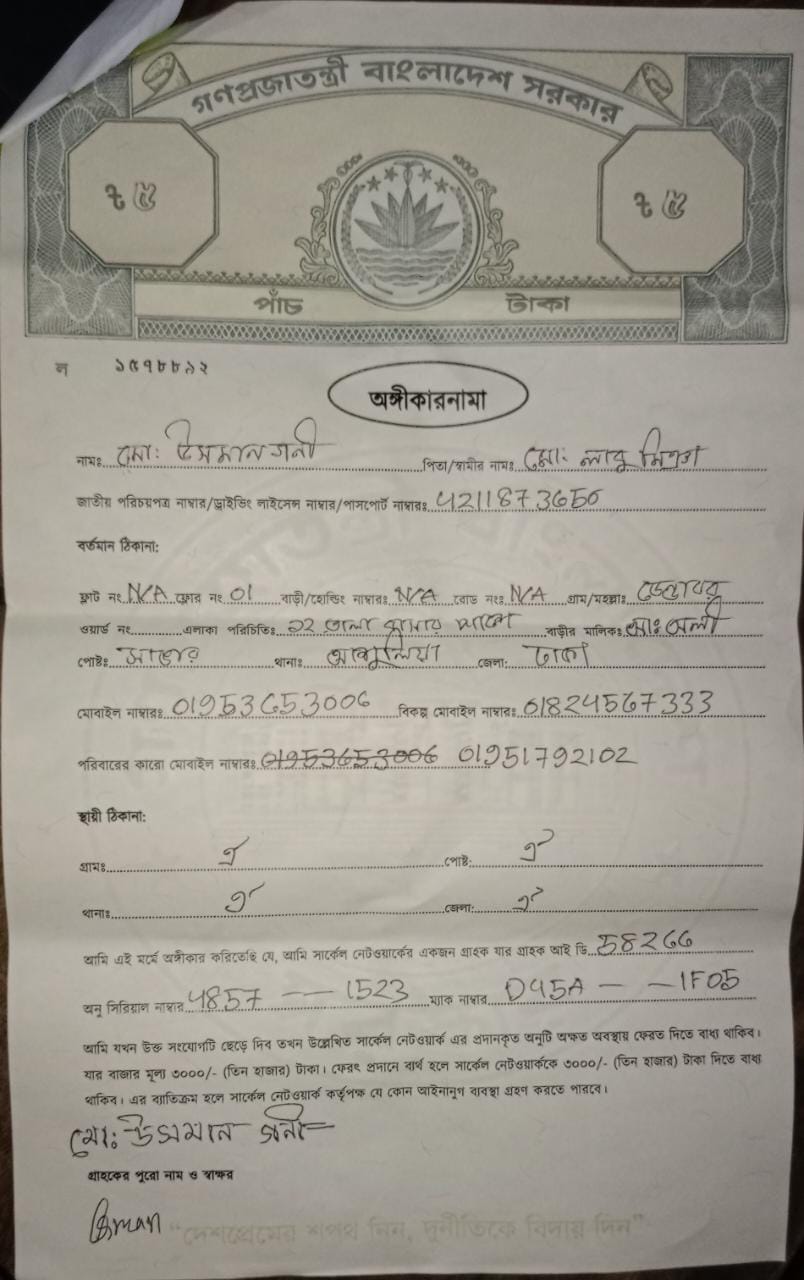 গণপ্রজাতন্ত্রী বাংলাদেশ সরকার
৳ ৫ ৳ ৫
পাঁচ টাকা
ল ১৫৭৮৮৯২
অঙ্গীকারনামা
নামঃ মো: উসমান গনী পিতা/স্বামীর নামঃ মো: লাবু মিঞা
জাতীয় পরিচয়পত্র নাম্বার/ড্রাইভিং লাইসেন্স নাম্বার/পাসপোর্ট নাম্বারঃ 4211873650
বর্তমান ঠিকানা:
ফ্লাট নং N/A ফ্লোর নং 01 বাড়ী/হোল্ডিং নাম্বারঃ N/A রোড নংঃ N/A গ্রাম/মহল্লাঃ
ওয়ার্ড নং এলাকা পরিচিতিঃ ১২ তালা বাড়ীর মালিকঃ মোঃ
পোষ্টঃ সাভার থানাঃ আশুলিয়া জেলা: ঢাকা
মোবাইল নাম্বারঃ 01953653006 বিকল্প মোবাইল নাম্বারঃ 01824567333
পরিবারের কারো মোবাইল নাম্বারঃ 01953653006 01951792102
স্থায়ী ঠিকানা:
গ্রামঃ ঐ পোষ্ট: ঐ
থানাঃ ঐ জেলা: ঐ
আমি এই মর্মে অঙ্গীকার করিতেছি যে, আমি সার্কেল নেটওয়ার্কের একজন গ্রাহক যার গ্রাহক আই ডি 58266
অনু সিরিয়াল নাম্বার 4857 -- 1523 ম্যাক নাম্বার D45A - - 1F05
আমি যখন উক্ত সংযোগটি ছেড়ে দিব তখন উল্লেখিত সার্কেল নেটওয়ার্ক এর প্রদানকৃত অনুটি অক্ষত অবস্থায় ফেরত দিতে বাধ্য থাকিব।
যার বাজার মূল্য ৩০০০/- (তিন হাজার) টাকা। ফেরৎ প্রদানে ব্যর্থ হলে সার্কেল নেটওয়ার্ককে ৩০০০/- (তিন হাজার) টাকা দিতে বাধ্য
থাকিব। এর ব্যতিক্রম হলে সার্কেল নেটওয়ার্ক কর্তৃপক্ষ যে কোন আইনানুগ ব্যবস্থা গ্রহণ করতে পারবে।
মো: উসমান গনী
গ্রাহকের পুরো নাম ও স্বাক্ষর
"দেশপ্রেমের শপথ নিন, দুর্নীতিকে বিদায় দিন"